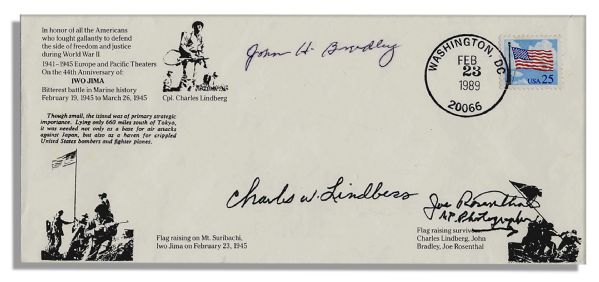 In honor of all the Americans
who fought gallantly to defend
the side of freedom and justice
during World War II
1941-1945 Europe and Pacific Theaters
On the 44th Anniversary of:
IWO JIMA
Bitterest battle in Marine history
February 19, 1945 to March 26, 1945
Cpl. Charles Lindberg
Though small, the island was of primary strategic
importance. Lying only 660 miles south of Tokyo,
it was needed not only as a base for air attacks
against Japan, but also as a haven for crippled
United States bombers and fighter planes.
John H. Bradley
WASHINGTON, DC
FEB
23
1989
20066
USA 25
Charles W. Lindberg
Joe Rosenthal
AP Photographer
Flag raising on Mt. Suribachi,
Iwo Jima on February 23, 1945
Flag raising survivors
Charles Lindberg, John
Bradley, Joe Rosenthal